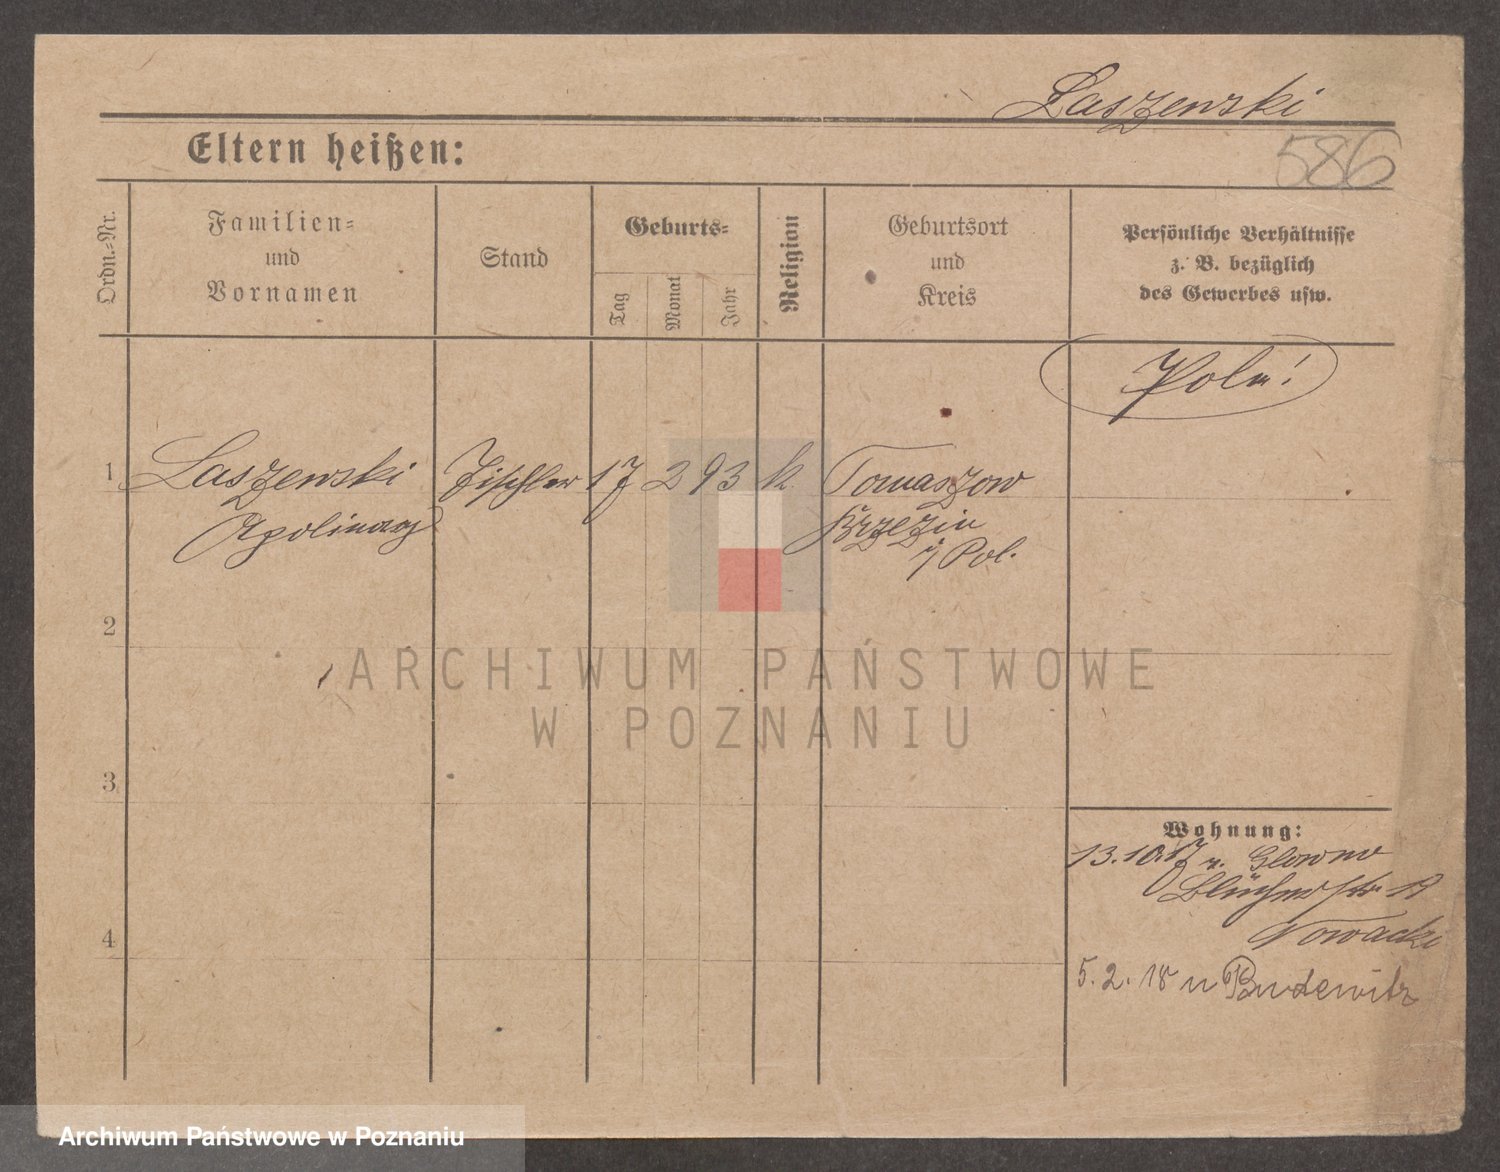 Laszewski
586
Eltern heißen:
Ordn.-Nr.
Familien-
und
Vornamen
Stand
Geburts-
Tag
Monat
Jahr
Religion
Geburtsort
und
Kreis
Persönliche Verhältnisse
z. B. bezüglich
des Gewerbes usw.
Pole!
1 Laszewski Tischler 17 2 93 k. Tomaszow
Apolinary Brzezin
i/ Pol.
2
3
4
Wohnung:
13.10.17 n. Glowno
Blücherstr. 19
Nowacki
5.2.18 n Pudewitz
ARCHIWUM PAŃSTWOWE
W POZNANIU
Archiwum Państwowe w Poznaniu